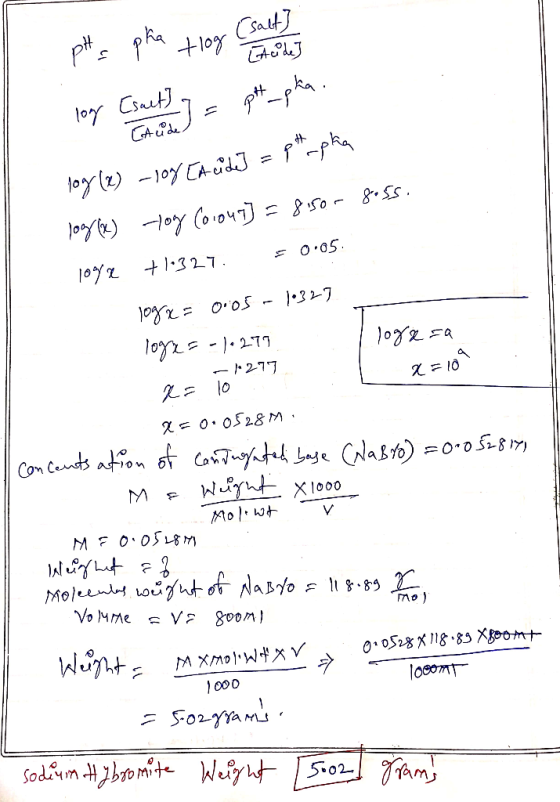 pH = pka + log [Salt]/[Acide]
log [Salt]/[Acide] ] = pH - pka.
log(x) - log [Acide] = pH - pka
log(x) - log (0.047] = 8.50 - 8.55.
log x + 1.327. = 0.05.
log x = 0.05 - 1.327
log x = -1.277
x = 10^-1.277
log x = a
x = 10^a
x = 0.0528 M.
Concentsation of Conjugated base (NaBrO) = 0.0528 M
M = Weight/Mol. wt X 1000/V
M = 0.0528 M
Weight = ?
Molecular weight of NaBrO = 118.89 g/mol
Volume = V = 800ml
Weight = M X mol. Wt X V/1000 ⇒ 0.0528 X 118.89 X 800ml/1000ml
= 5.02 grams.
Sodium Hybromite Weight 5.02 grams